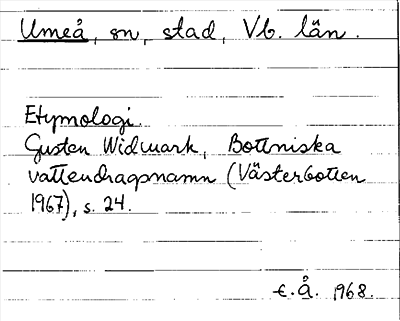 Umeå, sn, stad, Vb. län.
Etymologi.
Gusten Widmark, Bottniska
vattendragsnamn (Västerbotten
1967), s. 24.
E.Å. 1968.